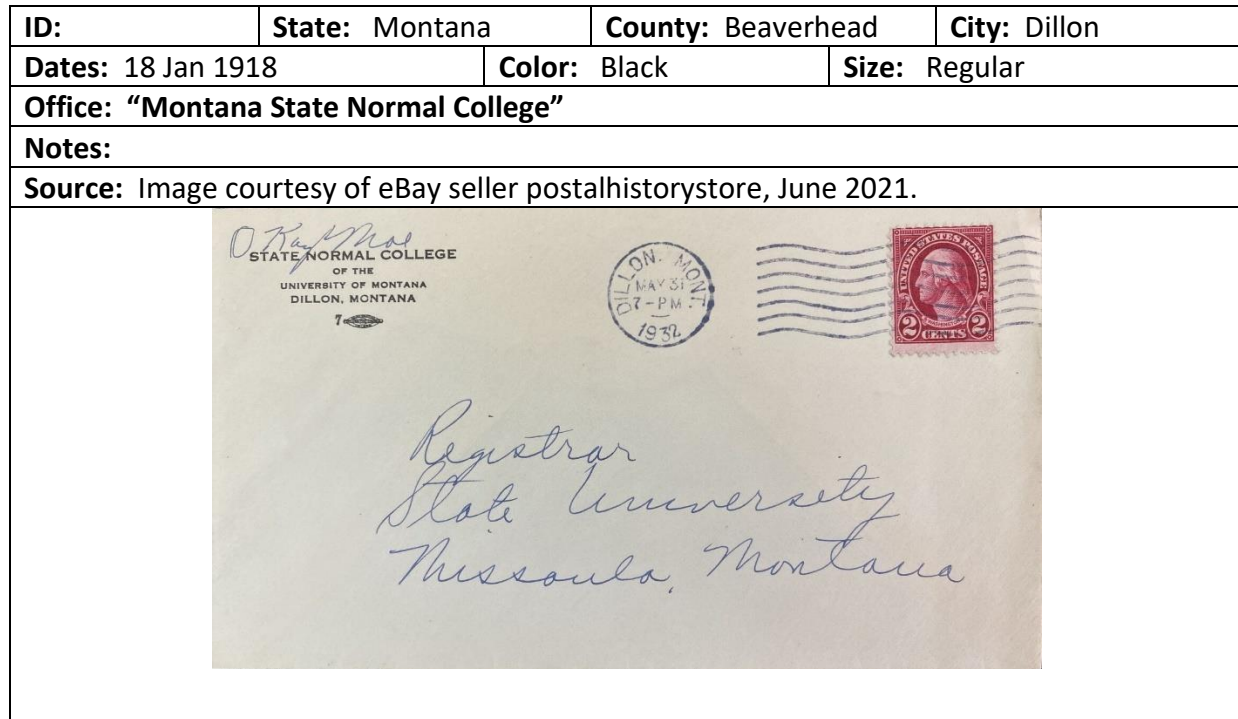 ID: State: Montana County: Beaverhead City: Dillon
Dates: 18 Jan 1918 Color: Black Size: Regular
Office: “Montana State Normal College”
Notes:
Source: Image courtesy of eBay seller postalhistorystore, June 2021.
O. Kay Moe
STATE NORMAL COLLEGE
OF THE
UNIVERSITY OF MONTANA
DILLON, MONTANA
7
DILLON, MONT
MAY 31
7-PM
1932
UNITED STATES POSTAGE
2 CENTS 2
Registrar
State University
Missoula, Montana